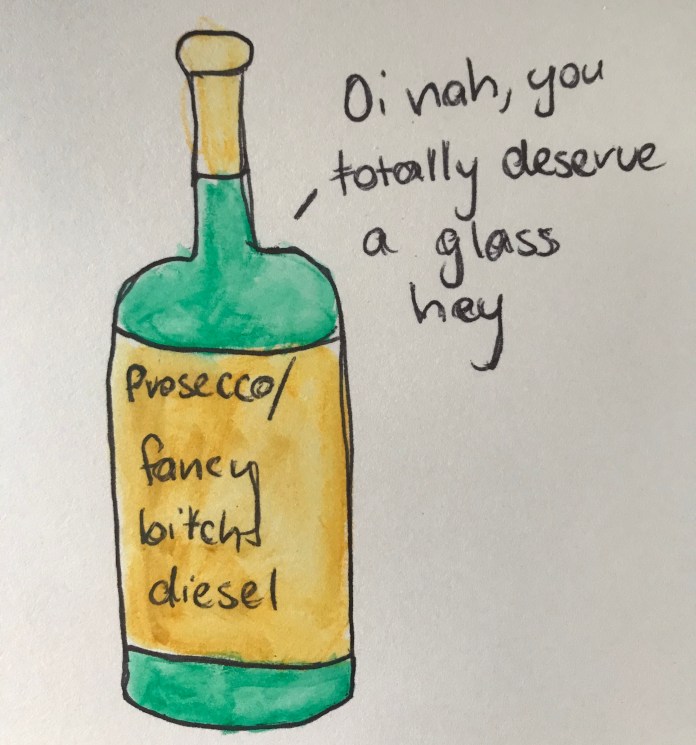 Oi nah, you
totally deserve
a glass
hey
Prosecco/
fancy
bitch
diesel